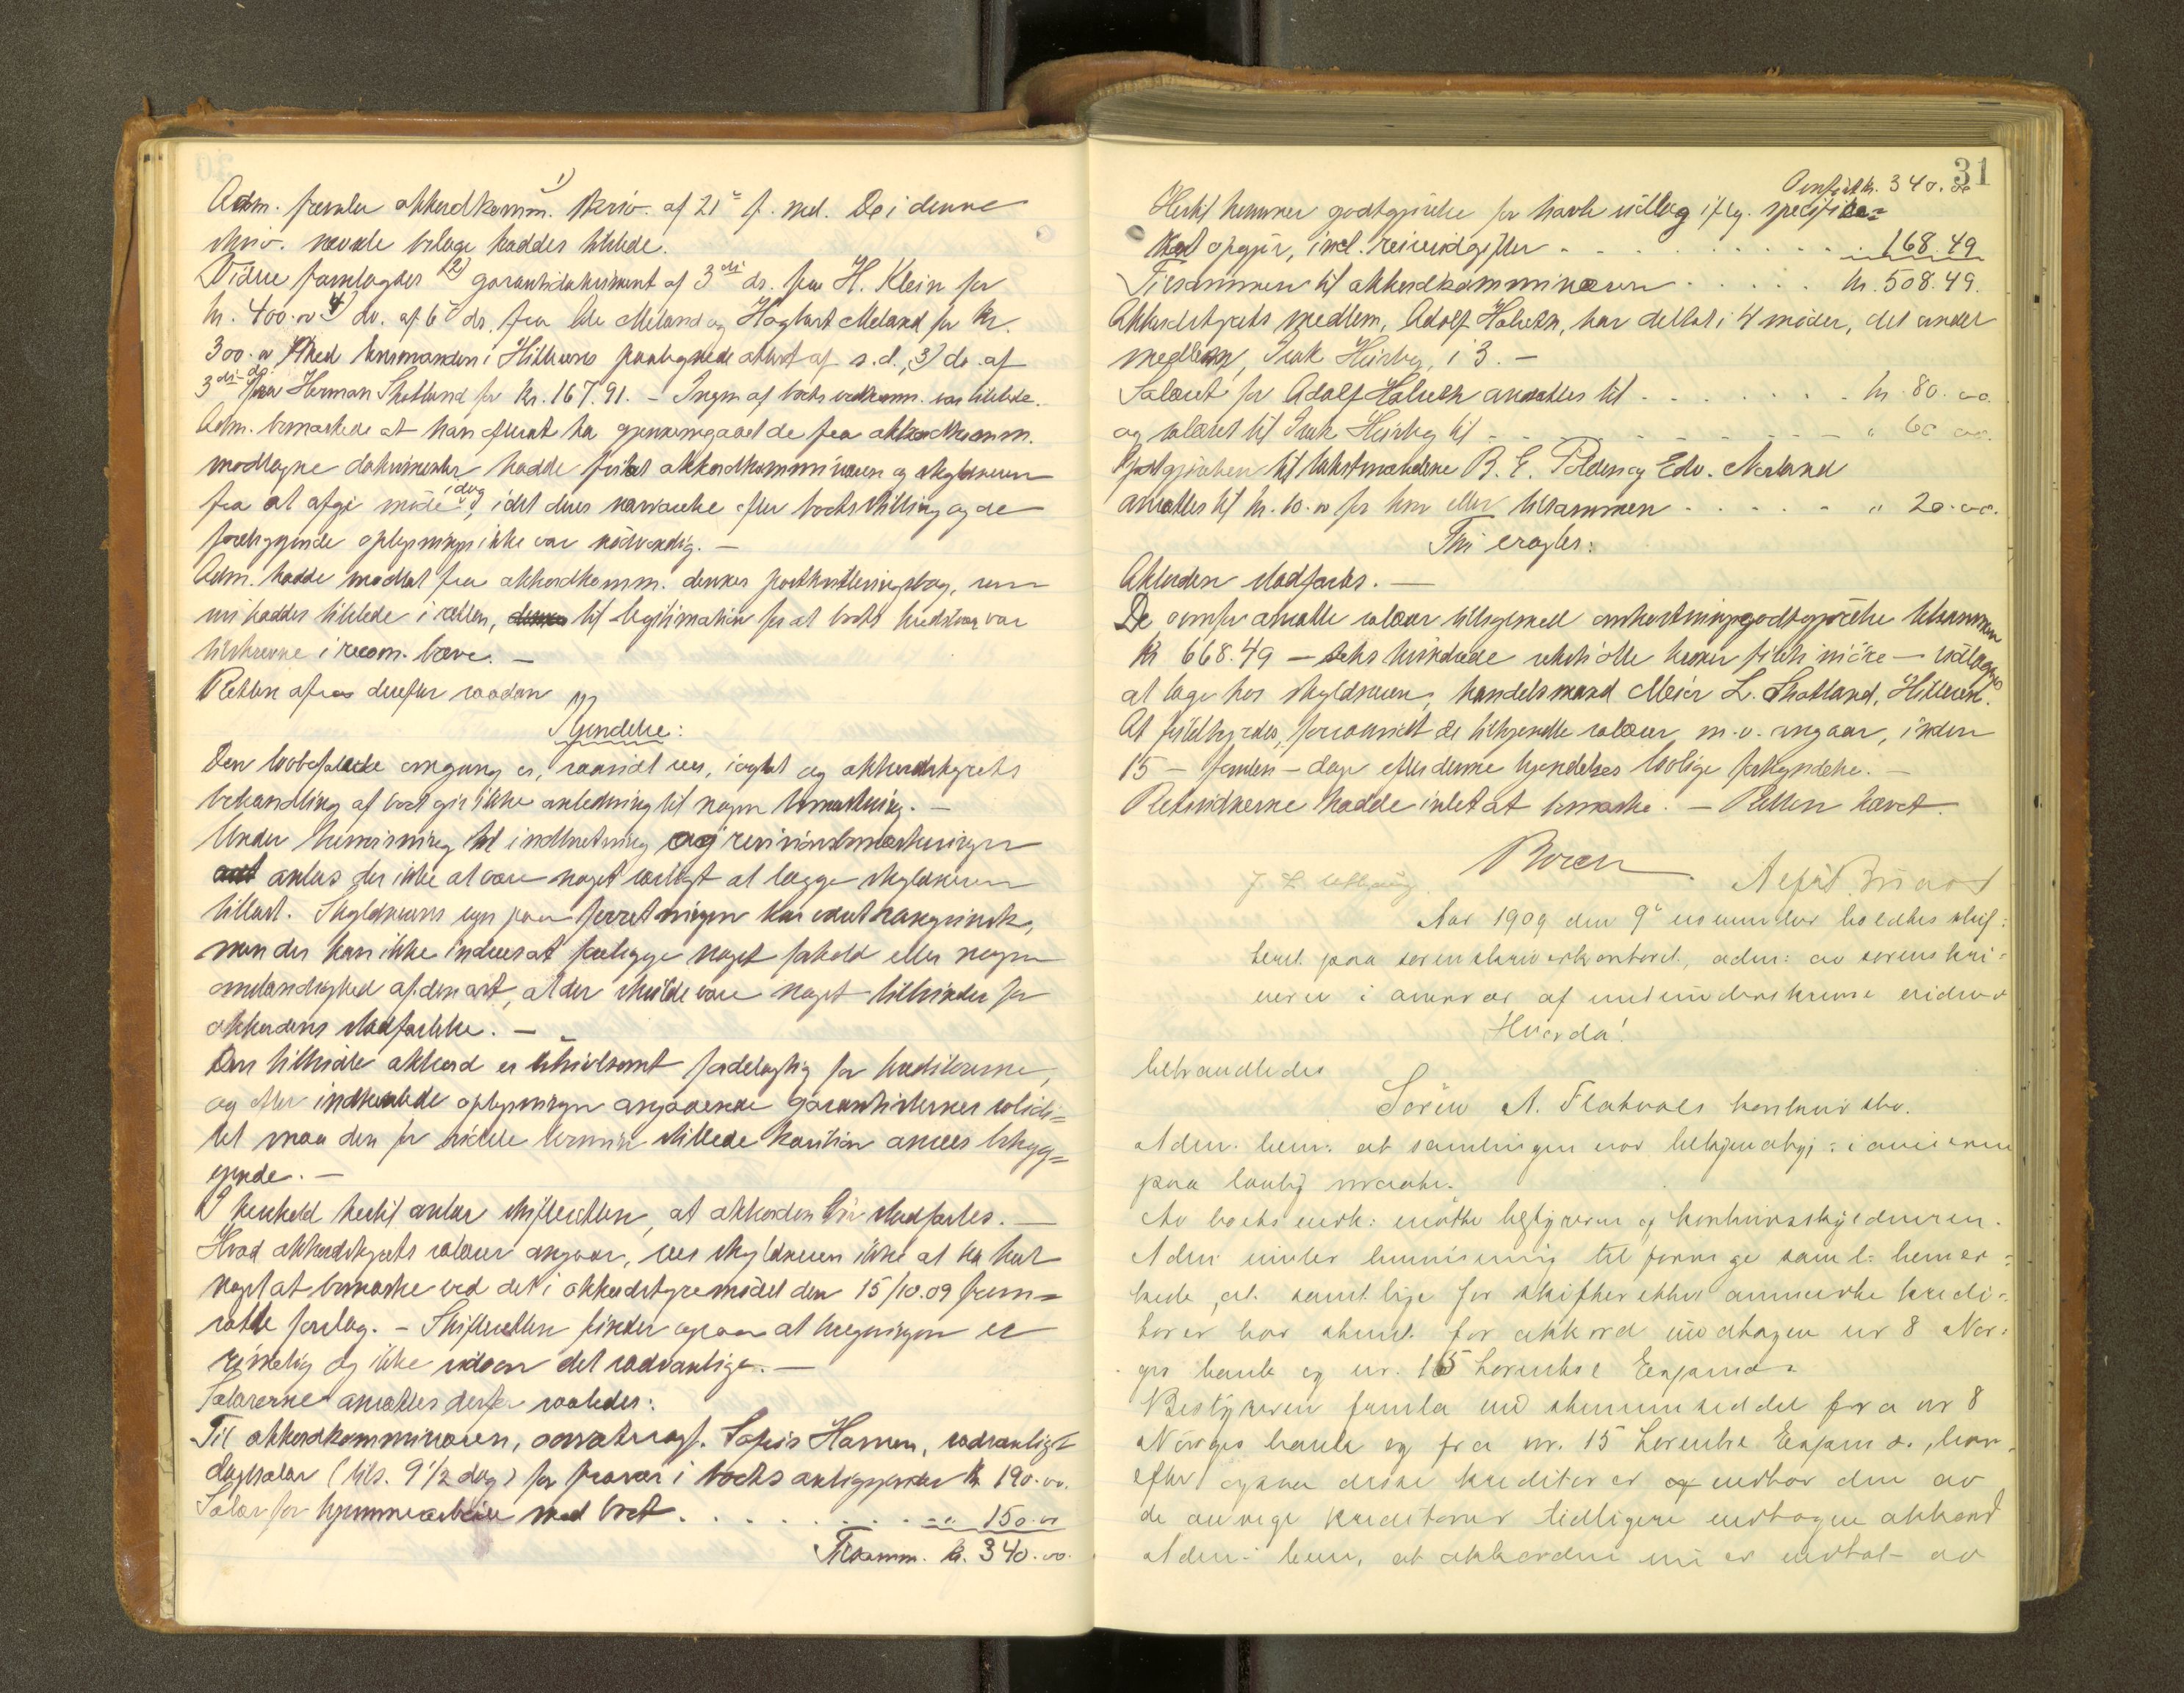 Adm. fremla akkordkomm. 1) skriv. af 21de f. md. De i denne
skriv. nævnte bilage haddes tilstede.
Vidre fremlagdes 2) garantidokument af 3die ds. fra H. Klein for
kr. 400.00 4) do. af 6te ds. fra Ole Meland og Hagbart Meland for kr.
300.00 med lensmanden i Hitterøens paategnede attest af s.d., 3) do. af
3die ds. fra Herman Skotland for kr. 167.91. - Ingen af boets vedkomm. var tilstede.
Adm. bemærkede at han efterat ha gjennemgaaet de fra akkordkomm.
modtagne dokumenter hadde fritat akkordkommissæren og skyldneren
fra at afgi møde idag, idet deres nærværelse efter boets stilling og de
foreliggende oplysninger ikke var nødvendig. —
Adm. hadde modtat fra akkordkomm. dennes postkvitteringsbog, som
nu haddes tilstede i retten, til legitimation for at boets kreditorer var
tilskrevne i recom. breve. —
Retten afsa derefter saadan
Kjendelse:
Den lovbefalede omgang er, saavidt sees, iagtat og akkordstyrets
behandling af boet gir ikke anledning til nogen bemærkning. —
Under henvisning til indberetning og revisionsbemærkninger
antas der ikke at være noget særligt at lægge skyldneren
tillast. Skyldnerens syn paa forretningen har været sangvinsk,
men der kan ikke indsees at foreligge noget forhold eller nogen
omstændighed af den art, at der skulde være noget tilhinder for
akkordens stadfæstelse. —
Den tilbudte akkord er utvivlsomt fordelagtig for kreditorerne,
og efter indhentede oplysninger angaaende garantisternes solidi=
tet maa den for sidste termin stillede kaution ansees betryg=
gende. —
I henhold hertil antar skifteretten, at akkorden bør stadfæstes. —
Hvad akkordstyrets salærer angaar, sees skyldneren ikke at ha hat
noget at bemærke ved det i akkordstyremødet den 15/10.09 frem=
satte forslag. - Skifteretten finder ogsaa at beregningen er
rimelig og ikke udover det sædvanlige. —
Salærerne ansættes derfor saaledes:
Til akkordkommissæren, overretssagf. Hansen, sædvanligt
dagsalær (tils. 9 1/2 dag) for fravær i boets anliggender kr. 190.00.
Salær for hjemmearbeide med boet . . . . . . . . . " 150.00
Tilsamm. kr. 340.00.
31
Overført kr. 340.00
Hertil kommer godtgjørelse for havte utlæg iflg. specifice=
ret opgjør, incl. reiseudgifter . . . . . . . . . 168.49
Tilsammen til akkordkommissæren . . . . . kr. 508.49.
Akkordstyrets medlem, Adolf Halseth, har deltat i 4 møder, det andet
medlem, Isak i 3. —
Salæret for Adolf Halseth ansættes til . . . . . . . kr. 80.00.
og salæret til Isak til . . . . . . . . . " 60.00.
Godtgjørelsen til takstmændene B. E. og Edv. Nesland
ansættes til kr. 10.00 for hver eller tilsammen . . . . . " 20.00.
Thi eragtes:
Akkorden stadfæstes. —
De ovenfor ansatte salærer tilligemed omkostningsgodtgjørelse tilsammen
kr 668.49 — seks hundrede seksti otte kroner firti ni øre — utlægges
at tage hos skyldneren, handelsmand Meier L. Skotland, Hitterøen.
At fuldbyrdes, forsaavidt de tilkjendte salærer m.v. angaar, inden
15 — femten — dage efter denne kjendelses lovlige forkyndelse. —
Retsvidnerne hadde intet at bemærke. — Retten hævet.
Aar 1909 den 9de november holdtes skif=
teret paa sorenskriverkontoret, adm: av sorenskri=
veren i overvær af medunderskrevne vidner
Hvorda!
behandledes
Søren A. konkursbo.
Adm. bem. at samlingen var bekjendtgj: i aviserne
paa lovlig maate.
Av boets vedk: møtte bestyreren og konkursskyldneren.
Adm under henvisning til forrige saml: bemer=
kede, at samtlige for skifteretten anmeldte kredi=
torer har stemt for akkord undtagen nr 8 Nor=
ges bank og nr. 15 Lorentse
Bestyreren femla nu stemmeseddel fra nr 8
Norges bank og fra nr. 15 Lorentse , hvor=
efter ogsaa disse kreditorer vedtar den av
de øvrige kreditorer tidligere vedtagne akkord
Adm: bem, at akkorden nu er vedtat av